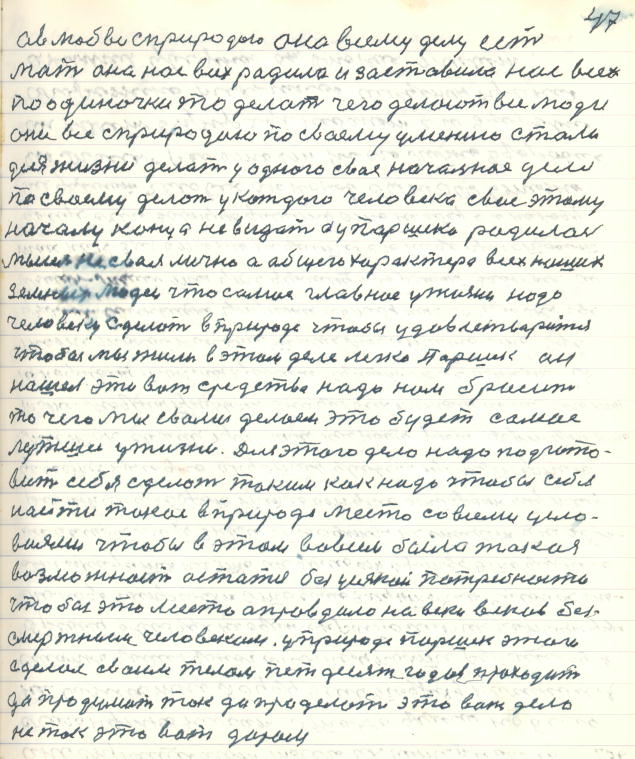 47
ов любви сприродою она всему делу ест
мат она нас всих радила и заставила нас всех
поодиночки это делат чего делают все люди
они все сприродаю посваему умению стали
для жизни делат у одного свае началное дело
па сваему делат укаждого человека свае этому
началу конца невидат а упаршика радилас
мысля не свая лично а абщего характера всех наших
земных людей что самае главное ужизни надо
человеку сделат вприроде чтобы удовлетварится
чтобы мы жили в этом деле легко Паршик он
нашел эта вот средства надо нам бросит
то чего мы свами делаем это будет самае
лутшеи ужизни. Для этого дело надо подгото-
вит себя сделат таким как надо чтобы себя
найти такое вприроде место совсеми усло-
виями чтобы в этом вовсем была такая
возможност астатся без усякой потребности
чтобы это место аправдало на веки веков без-
смертным человеком. уприроде паршик этого
сделал сваим телом петдесят годов проходит
да продумат так да праделат это вот дело
не так это вот даром